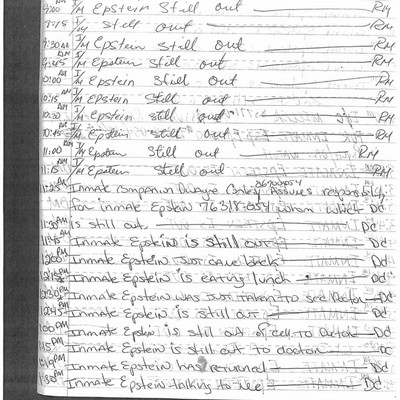 9:00 AM I/M Epstein still out RM
9:15 I/M still out RM
9:30 AM I/M Epstein still out RM
9:45 I/M Epstein still out RM
10:00 AM I/M Epstein still out RM
10:15 AM I/M Epstein still out RM
10:30 I/M Epstein still out RM
10:45 AM I/M Epstein still out RM
11:00 AM I/M Epstein still out RM
11:15 AM I/M Epstein still out RM
11:25 Inmate Companion Assumes responsibility
for inmate Epstein 76318-054 whom which DC
11:30 AM is still out. DC
11:45 AM Inmate Epstein is still out DC
12:00 PM Inmate Epstein just came back DC
12:15 PM Inmate Epstein is eating lunch DC
12:30 PM Inmate Epstein was just taken to see Doctor DC
12:45 PM Inmate Epstein is still out DC
1:00 PM Inmate Epstein is still out of cell to Doctor DC
1:15 PM Inmate Epstein is still out to doctor DC
Inmate Epstein has returned DC
1:30 PM Inmate Epstein talking to me DC